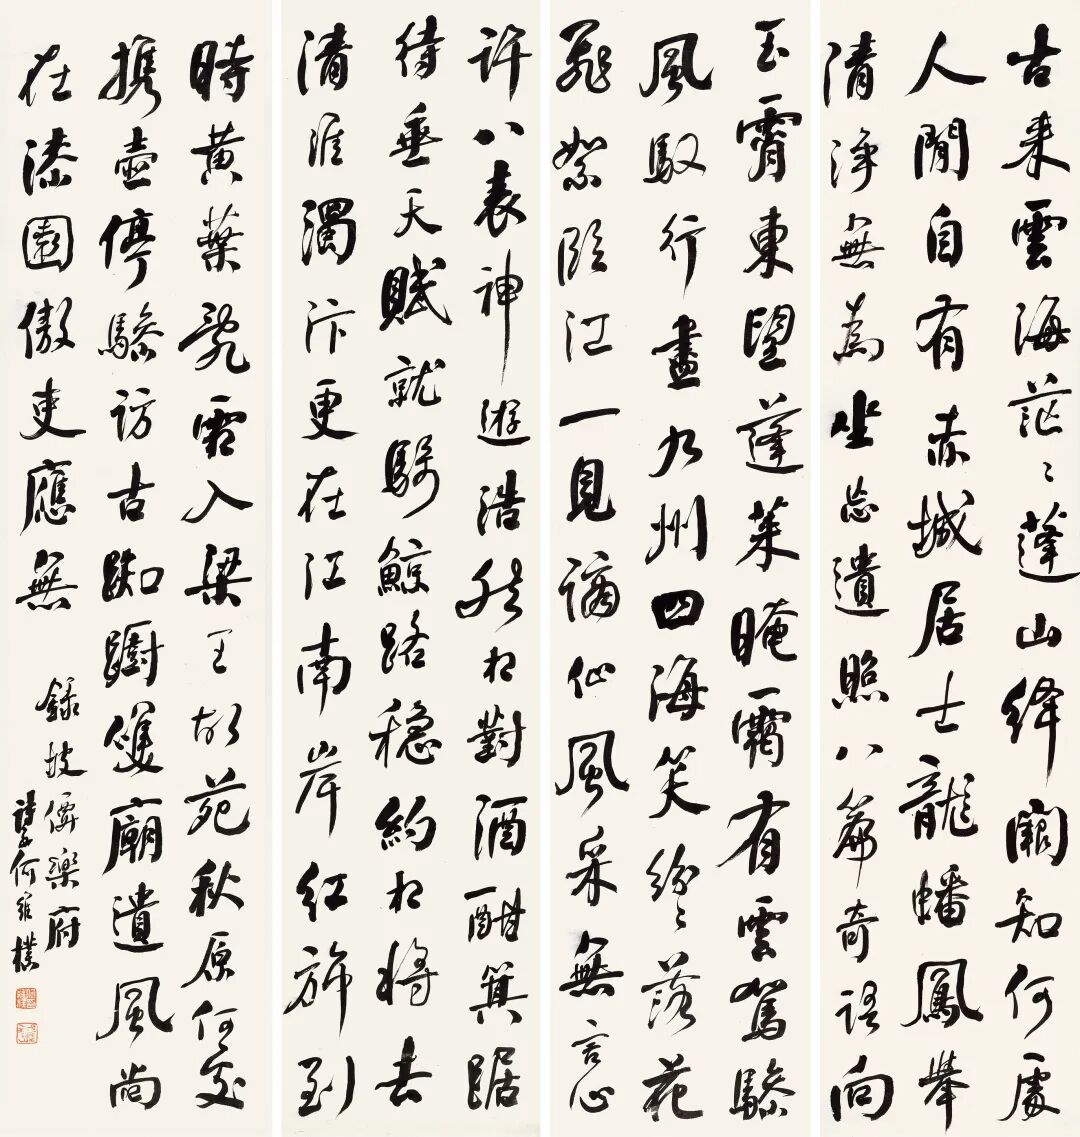 古來雲海茫々蓬山絳闕知何處
人間自有赤城居士龍蟠鳳舉
清淨無為坐忘遺照八篇奇語向
玉霄東望蓬萊晻靄有雲駕驂
風馭行盡九州四海笑紛々落花
飛絮臨江一見謫仙風采無言心
許八表神遊浩然相對酒酣箕踞
待垂天賦就騎鯨路穩約相將去
清淮濁汴更在江南岸紅旆到
時黃葉亂霜入梁王故苑秋原何處
攜壺停驂訪古踟躕雙廟遺風尚
在漆園傲吏應無
錄坡僊樂府
詩孫何維樸